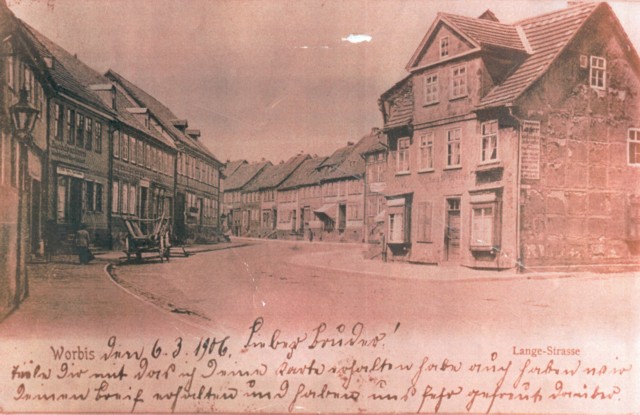 Worbis den 6.3.1906. Lieber Bruder!
Lange-Strasse
teile Dir mit das ich deine Karte erhalten habe auch haben wir
deinen Breif erhalten und haben uns sehr gefreut darüber